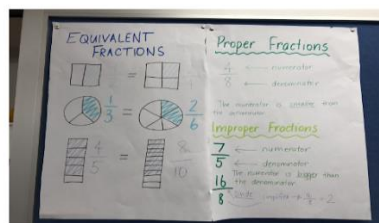 EQUIVALENT
FRACTIONS
=
1/3 = 2/6
4/5 = 8/10
Proper Fractions
4 ← numerator
8 ← denominator
The numerator is smaller than
the denominator
Improper Fractions
7 ← numerator
5 ← denominator
16 The numerator is bigger than
8 the denominator
= 2